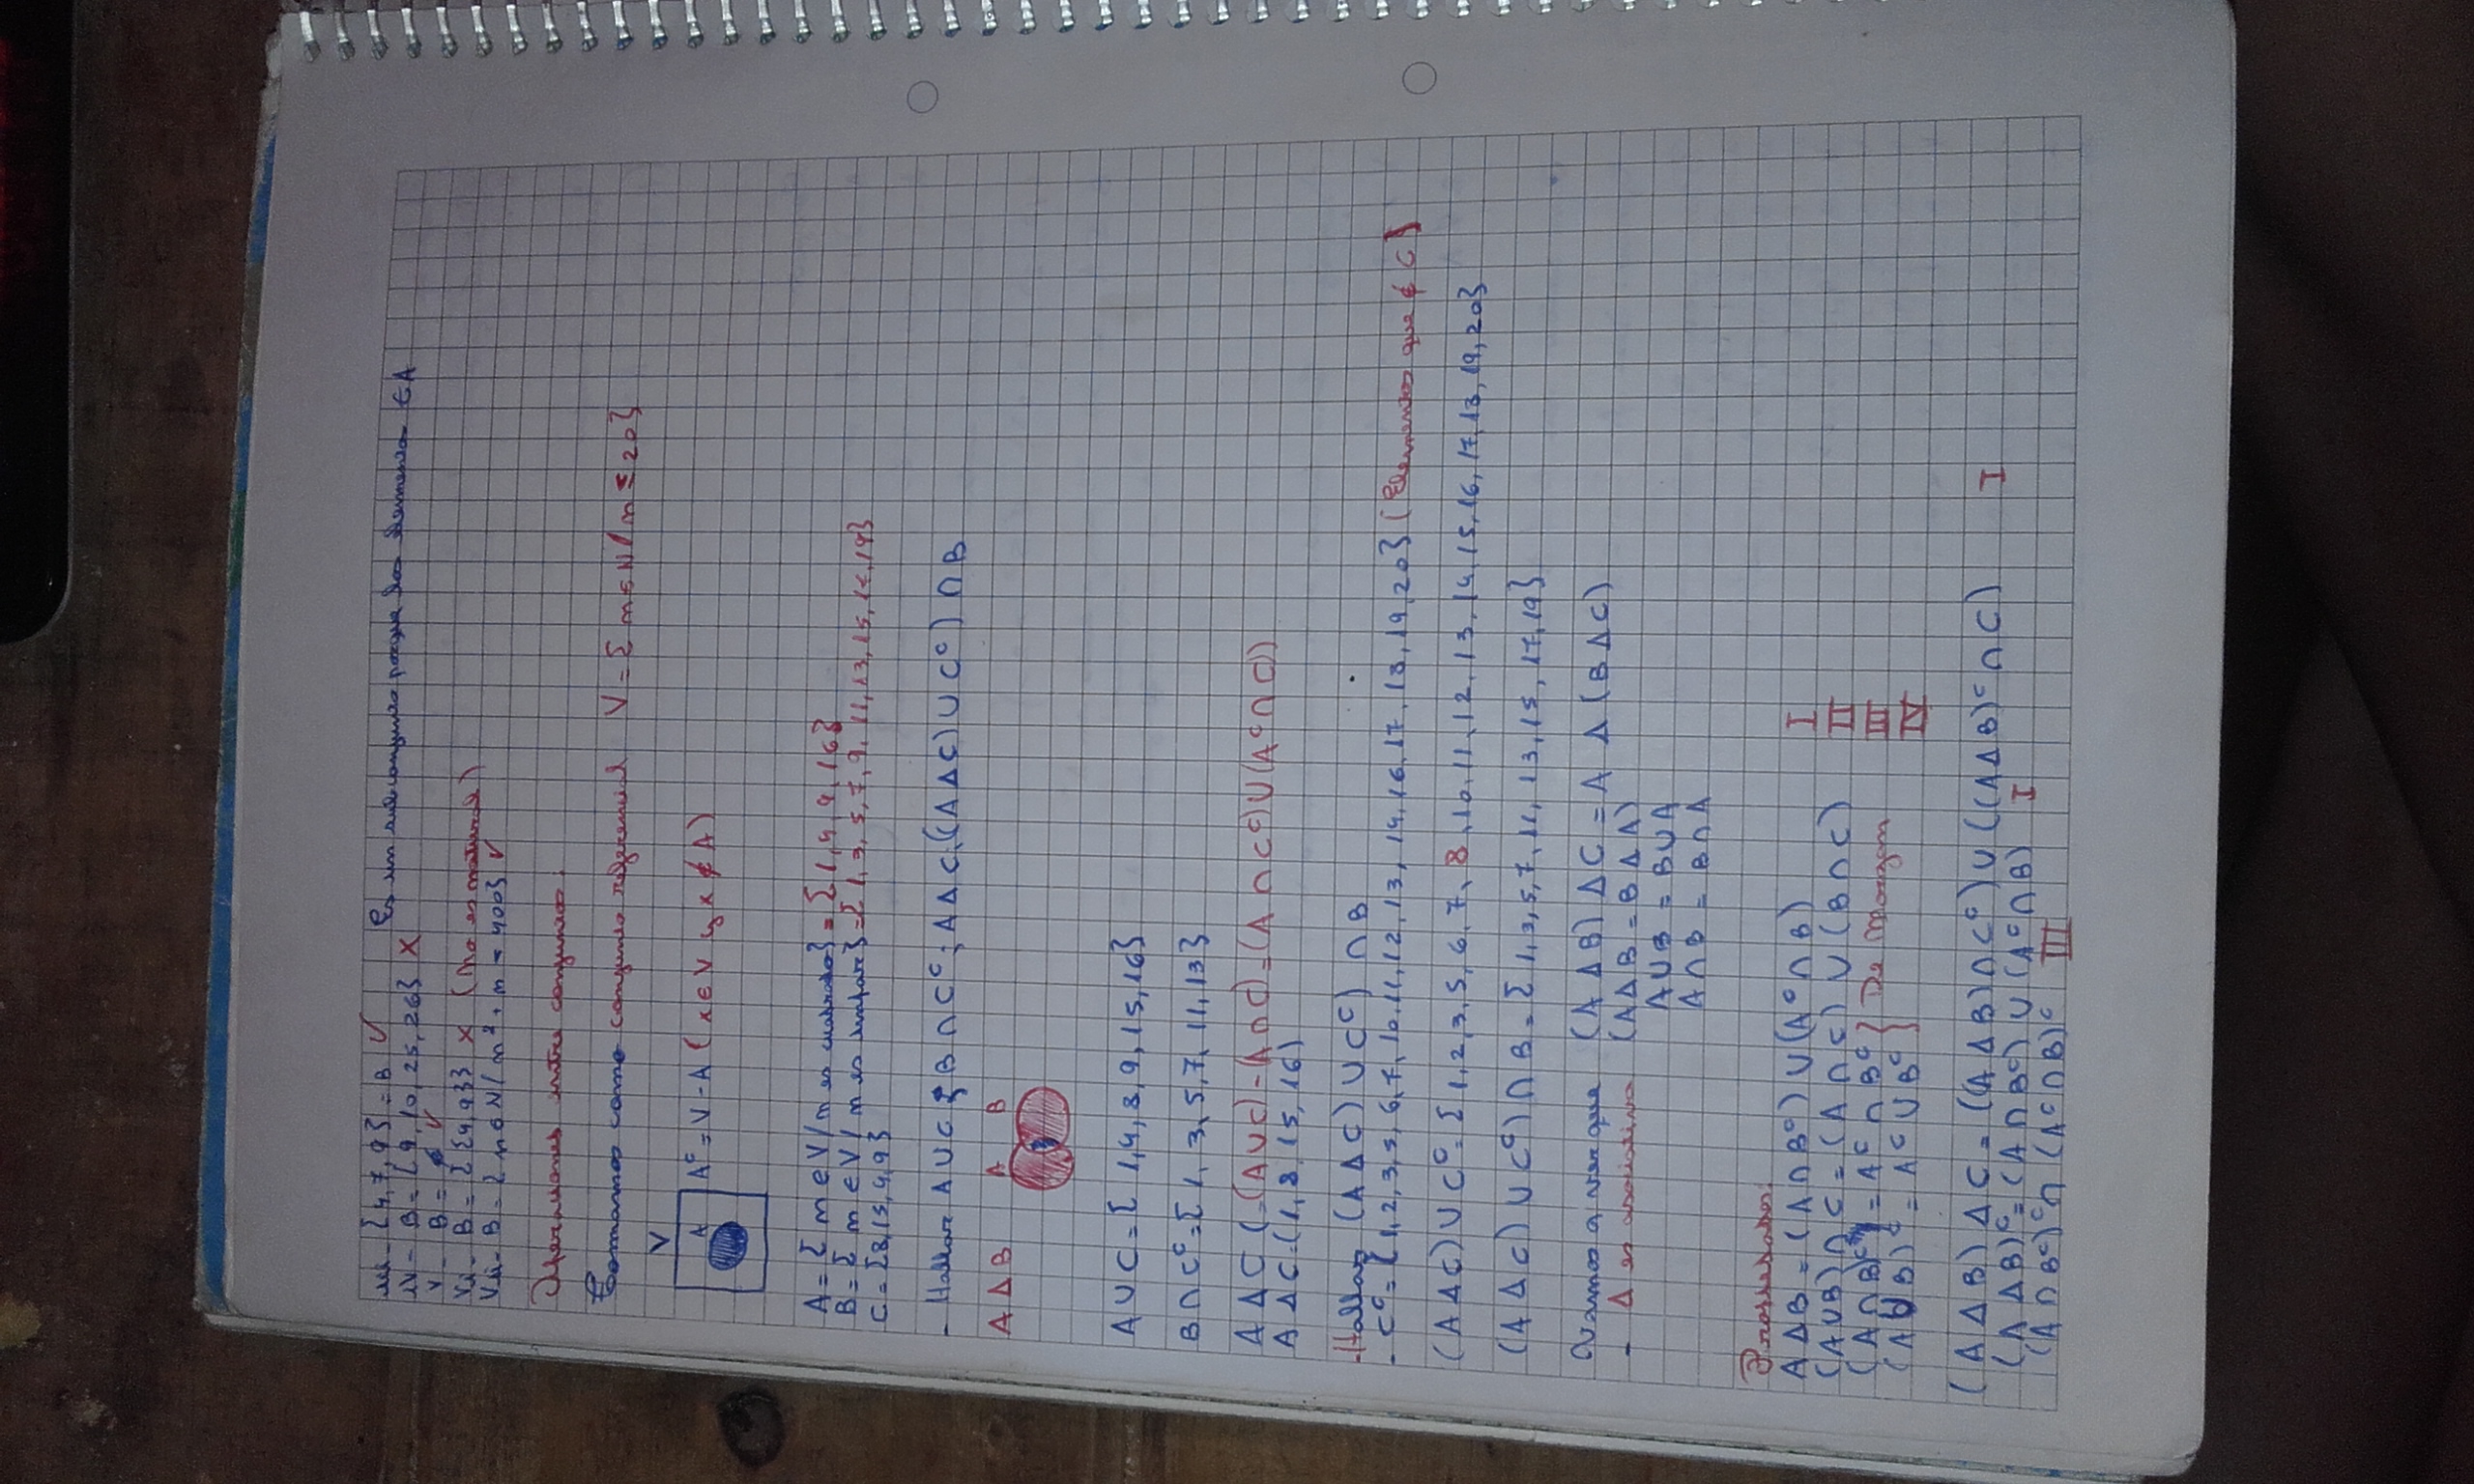 iii- {4,7,9} = B ✓ Es un subconjunto porque los elementos ∈ A
iv- B = {9, 10, 25, 26} X
v- B = ∅ ✓
vi- B = {{4,9}} x (No es natural)
vii- B = { n ∈ N / n² + n = 400} ✓
Operaciones entre conjuntos:
Tomamos como conjunto referencial V = { n ∈ N / n ≤ 20}
V
A
Aᶜ = V - A (x ∈ V y x ∉ A)
A = { n ∈ V / n es cuadrado} = {1, 4, 9, 16}
B = { n ∈ V / n es impar} = {1, 3, 5, 7, 9, 11, 13, 15, 17, 19}
C = {8,15,4,9}
- Hallar A ∪ C ; B ∩ Cᶜ ; A Δ C; (A Δ C) ∪ Cᶜ) ∩ B
A Δ B A B
A ∪ C = { 1,4, 8, 9, 15, 16}
B ∩ Cᶜ = { 1, 3, 5, 7, 11, 13}
A Δ C (= (A ∪ C) - (A ∩ C) = (A ∩ Cᶜ) ∪ (Aᶜ ∩ C))
A Δ C = (1, 8, 15, 16)
- Hallar (A Δ C) ∪ Cᶜ) ∩ B
- Cᶜ = {1, 2, 3, 5, 6, 7, 10, 11, 12, 13, 14, 16, 17, 18, 19, 20} (Elementos que ∉ C)
(A Δ C) ∪ Cᶜ = { 1, 2, 3, 5, 6, 7, 8, 10, 11, 12, 13, 14, 15, 16, 17, 18, 19, 20}
(A Δ C) ∪ Cᶜ) ∩ B = { 1, 3, 5, 7, 11, 13, 15, 17, 19}
Vamos a ver que (A Δ B) Δ C = A Δ (B Δ C)
- Δ es asociativa (A Δ B = B Δ A)
A ∪ B = B ∪ A
A ∩ B = B ∩ A
A Δ B = (A ∩ Bᶜ) ∪ (Aᶜ ∩ B) I
(A ∪ B) ∩ C = (A ∩ C) ∪ (B ∩ C) II
(A ∩ B)ᶜ = Aᶜ ∩ Bᶜ } De Morgan III
(A ∪ B)ᶜ = Aᶜ ∪ Bᶜ IV
(A Δ B) Δ C = ((A Δ B) ∩ Cᶜ) ∪ ((A Δ B)ᶜ ∩ C) I
(A Δ B)ᶜ = (A ∩ Bᶜ) ∪ (Aᶜ ∩ B) I
(A ∩ Bᶜ)ᶜ ∩ (Aᶜ ∩ B)ᶜ III